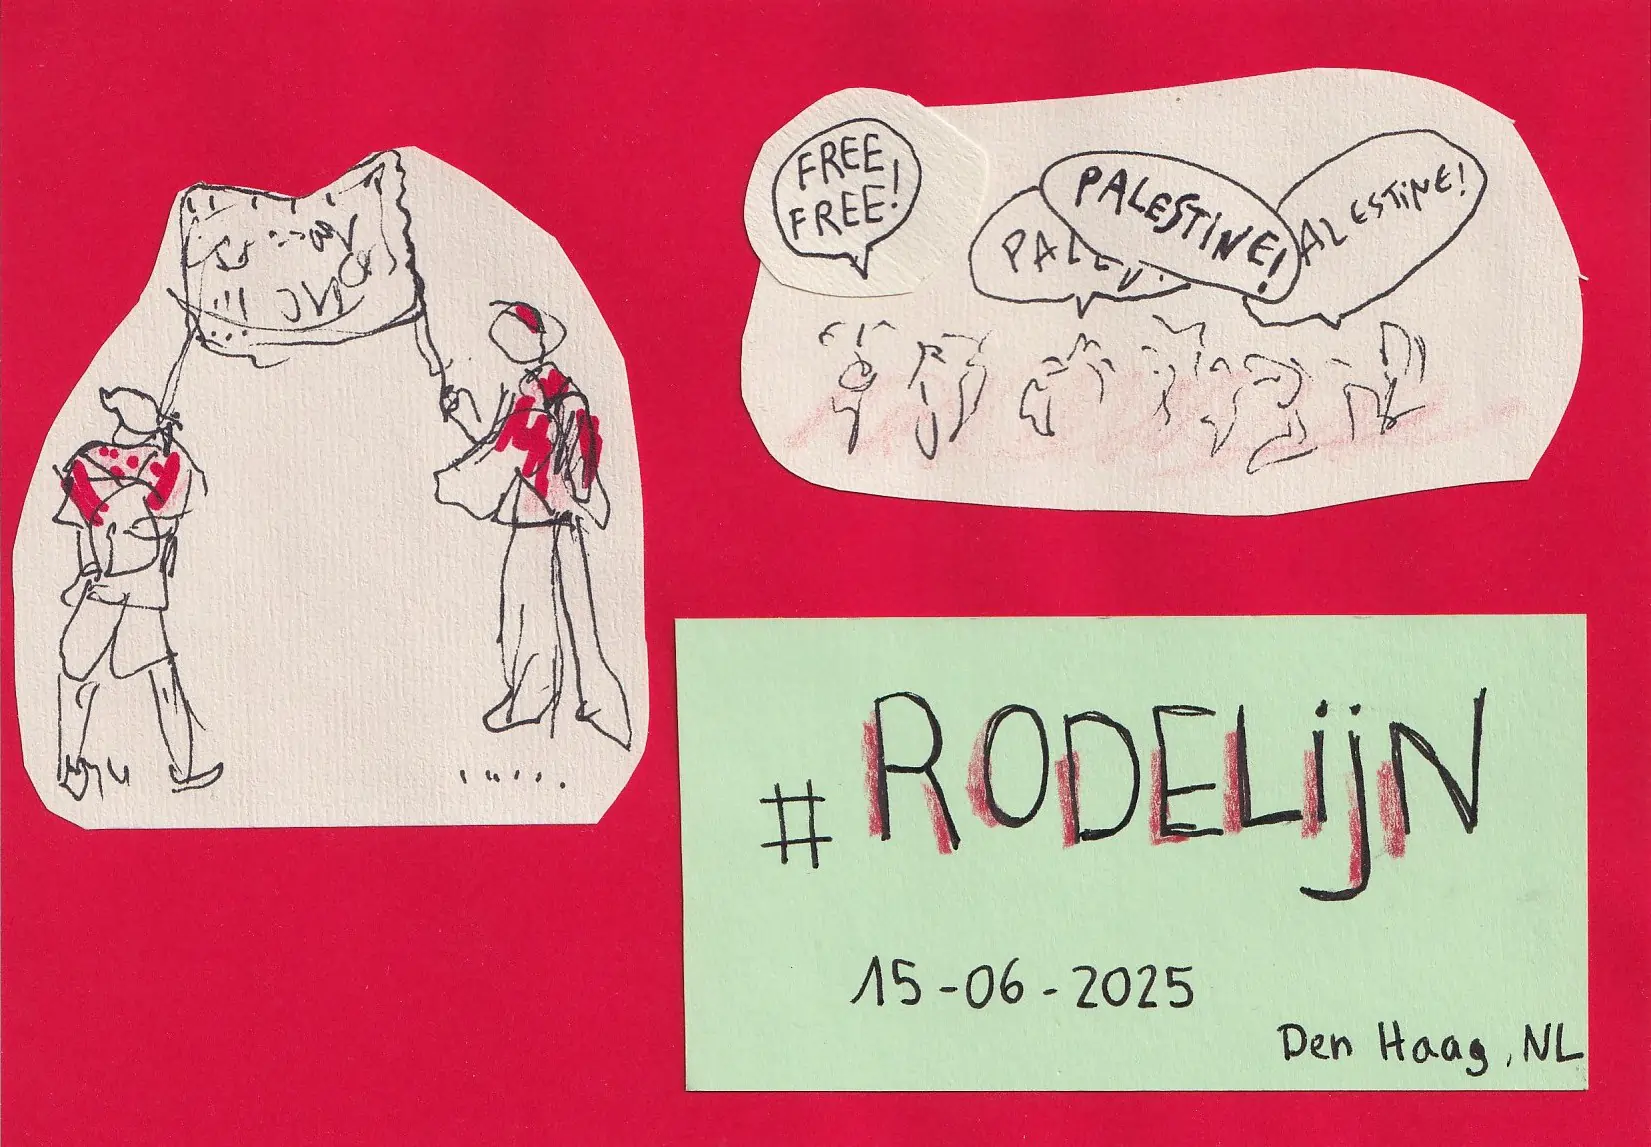 FREE
FREE!
PALESTINE!
ALESTINE!
#RODELijN
15-06-2025
Den Haag, NL